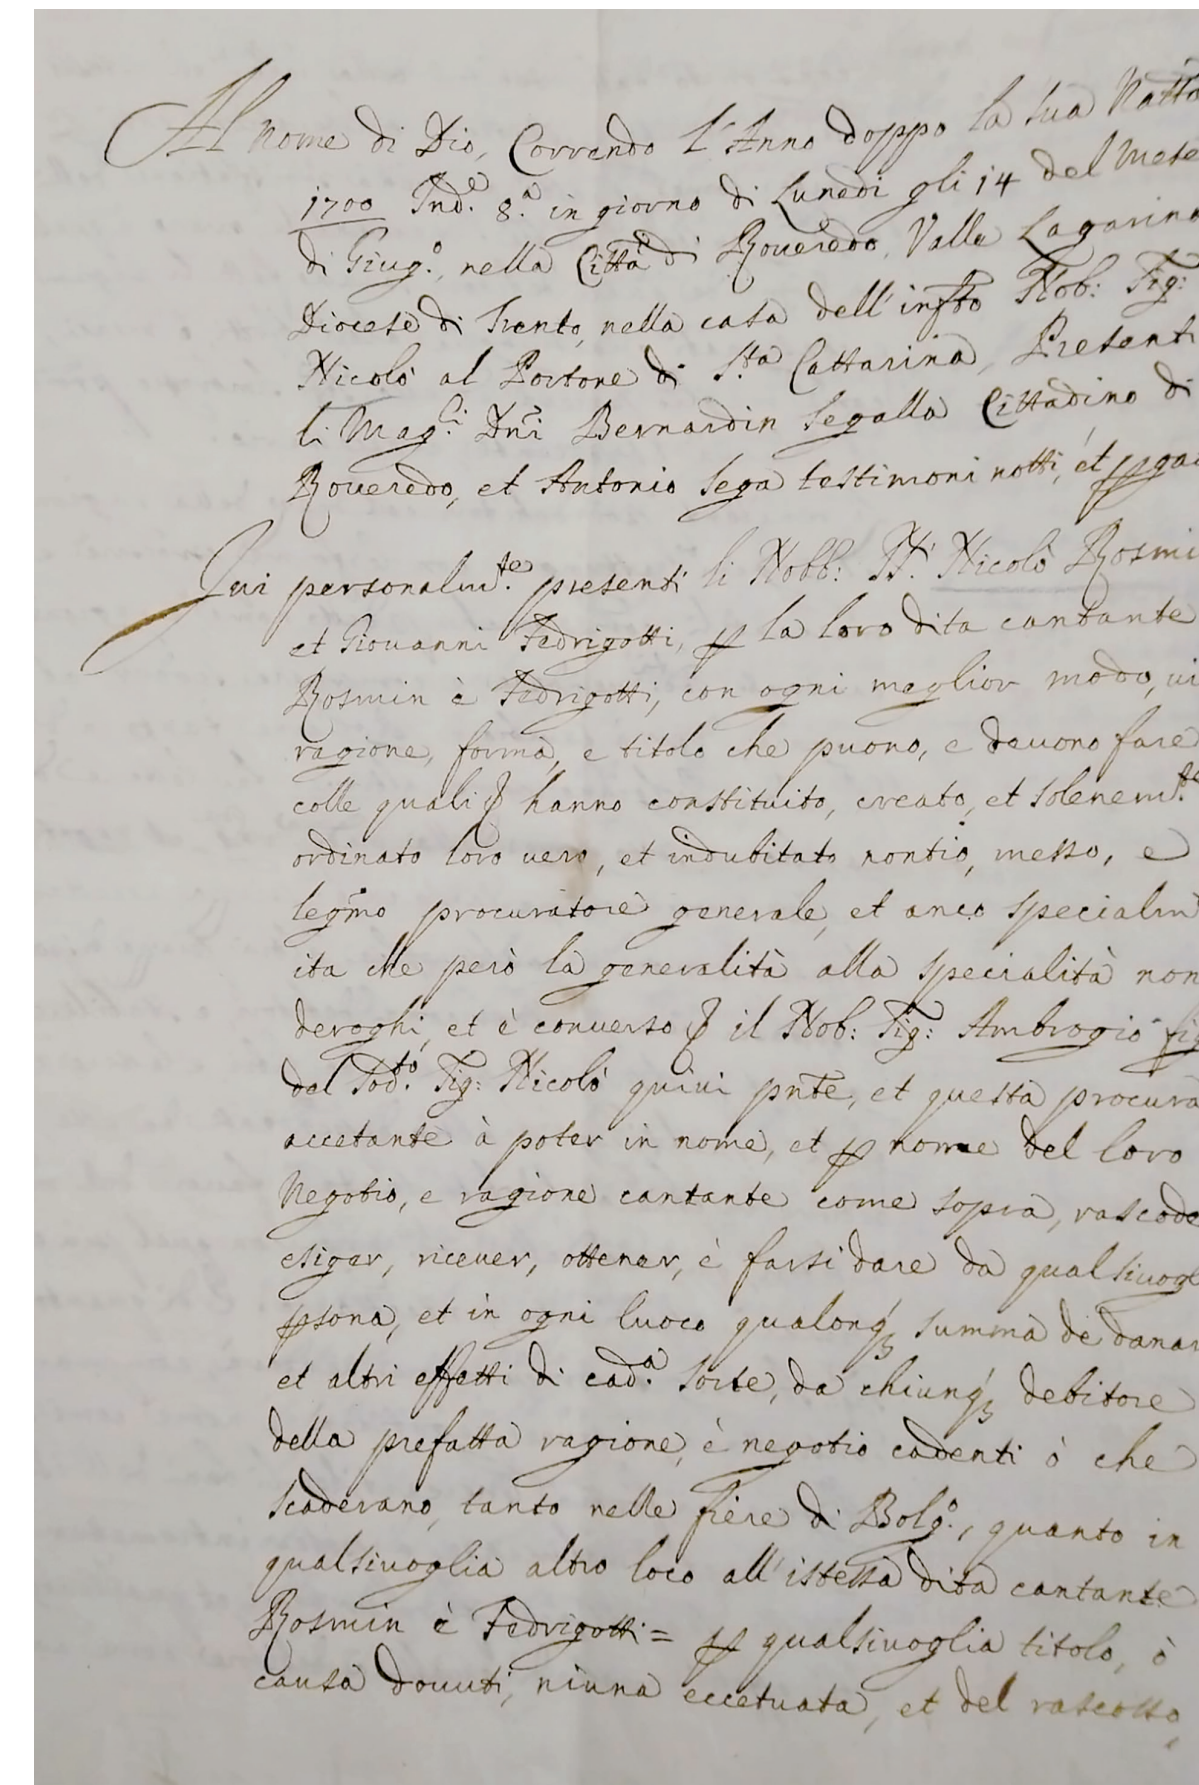 Al Nome di Dio, Correndo l'Anno doppo la sua Natta
1700 Ind.e 8.a in giorno di Lunedi gli 14 del Mese
di Giug.o, nella Città di Roueredo, Valle Lagarina
Diocese di Trento, nella casa dell'infto Nob: Sig:
Nicolò al Portone di S.ta Cattarina, Presenti
li Mag.ci Dni Bernardin Segalla Cittadino di
Roueredo, et Antonio Sega testimoni notti, et pgai
Iui personalm.te presenti li Nobb: SS.ri Nicolò Rosmi
et Giouanni Fedrigotti, p la loro dita cantante
Rosmin è Fedrigotti, con ogni meglior modo, ui
ragione, forma, e titolo che puono, e deuono fare
colle quali hanno constituito, creato, et solenem.te
ordinato loro uero, et indubitato nontio, messo, e
legmo procuratore generale, et anco specialm
ita che però la generalità alla specialità non
deroghi, et è conuerso il Nob: Sig: Ambrogio fig
del Sod.to Sig: Nicolò quiui pnte, et questa procura
accetante à poter in nome, et p nome del loro
Negotio, e ragione cantante come sopra, rascode
esiger, riceuer, ottener, è farsi dare da qualsiuogl
psona, et in ogni luoco qualonq3 summa de danar
et altri effetti di cad.a sorte, da chiunq3 debitore
della prefatta ragione, è negotio cadenti ò che
scaderano, tanto nelle fiere di Bolg.o, quanto in
qualsiuoglia altro loco all'istessa dita cantante
Rosmin è Fedrigotti = p qualsiuoglia titolo, ò
causa douuti, niuna eccetuata, et del rascosso,